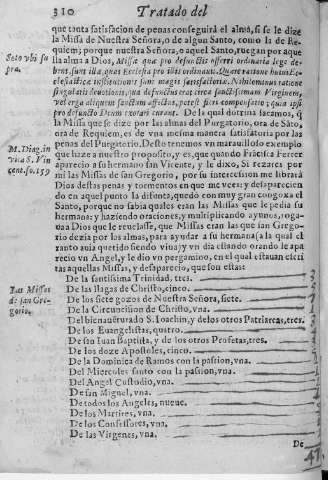 310 Tratado del
que tanta satisfacion de penas conseguirá el alma, si se le dize
la Missa de Nuestra Señora, o de algun Santo, como la de Re-
quiem; porque nuestra Señora, o aquel Santo, ruegan por aque
lla alma a Dios, Missæ quæ pro defunctis offerri ordinaria lege de-
bent, sunt illæ, quas Ecclesia pro illis ordinauit. Quare ratione huius Ec-
clesiasticæ institutionis sunt magis satisfactoriæ. Nihilominus ratione
singularis deuotionis, qua defunctus erat circa sanctissimam Virginem,
vel erga aliquem sanctum affectus, potest fieri compensatio; quia ipsi
pro defuncto Deum rogant orant. De la qual dotrina sacamos, q̃
la Missa que se dize por las almas del Purgatorio, ora de Sãto,
ora de Requiem, es de vna mesma manera satisfatoria por las
penas del Purgatorio. Desto tenemos vn marauilloso exemplo
que haze a nuestro proposito, y es, que quando Frãcisca Ferrer
aparecio a su hermano san Vicente, y le dixo, Si rezares por
mi las Missas de san Gregorio, por su intercession me librará
Dios destas penas y tormentos en que me vees: y desaparecien
do en aquel punto la difunta, quedó con muy gran congoxa el
Santo, porque no sabia quales eran las Missas que le pedia su
hermana: y haziendo oraciones, y multiplicando ayunos, roga-
ua a Dios que le reuelasse, que Missas eran las que san Grego-
rio dezia por las almas, para ayudar a su hermana (a la qual el
tanto auia querido siendo viua) y vn dia estando orando le apa
recio vn Angel, y le dio vn pergamino, en el qual estauan escri
tas aquellas Missas, y desaparecio, que son estas:
Soto vbi su
pra.
M. Diag. in
vita S. Vin
cent. fo. 159
Las Missas
de san Gre-
gorio.
De la santissima Trinidad, tres. 3
De las llagas de Christo, cinco. 5
De los siete gozos de Nuestra Señora, siete. 7
De la Circuncision de Christo, vna. 1
Del bienauẽturado S. Ioachin, y de los otros Patriarcas, tres. 3
De los Euangelistas, quatro.
De san Iuan Baptista, y de los otros Profetas, tres.
De los doze Apostoles, cinco.
De la Dominica de Ramos con la passion, vna.
Del Miercoles santo con la passion, vna.
Del Angel Custodio, vna.
De san Miguel, vna.
De todos los Angeles, nueue.
De los Martires, vna.
De los Confessores, vna.
De las Virgenes, vna.
De